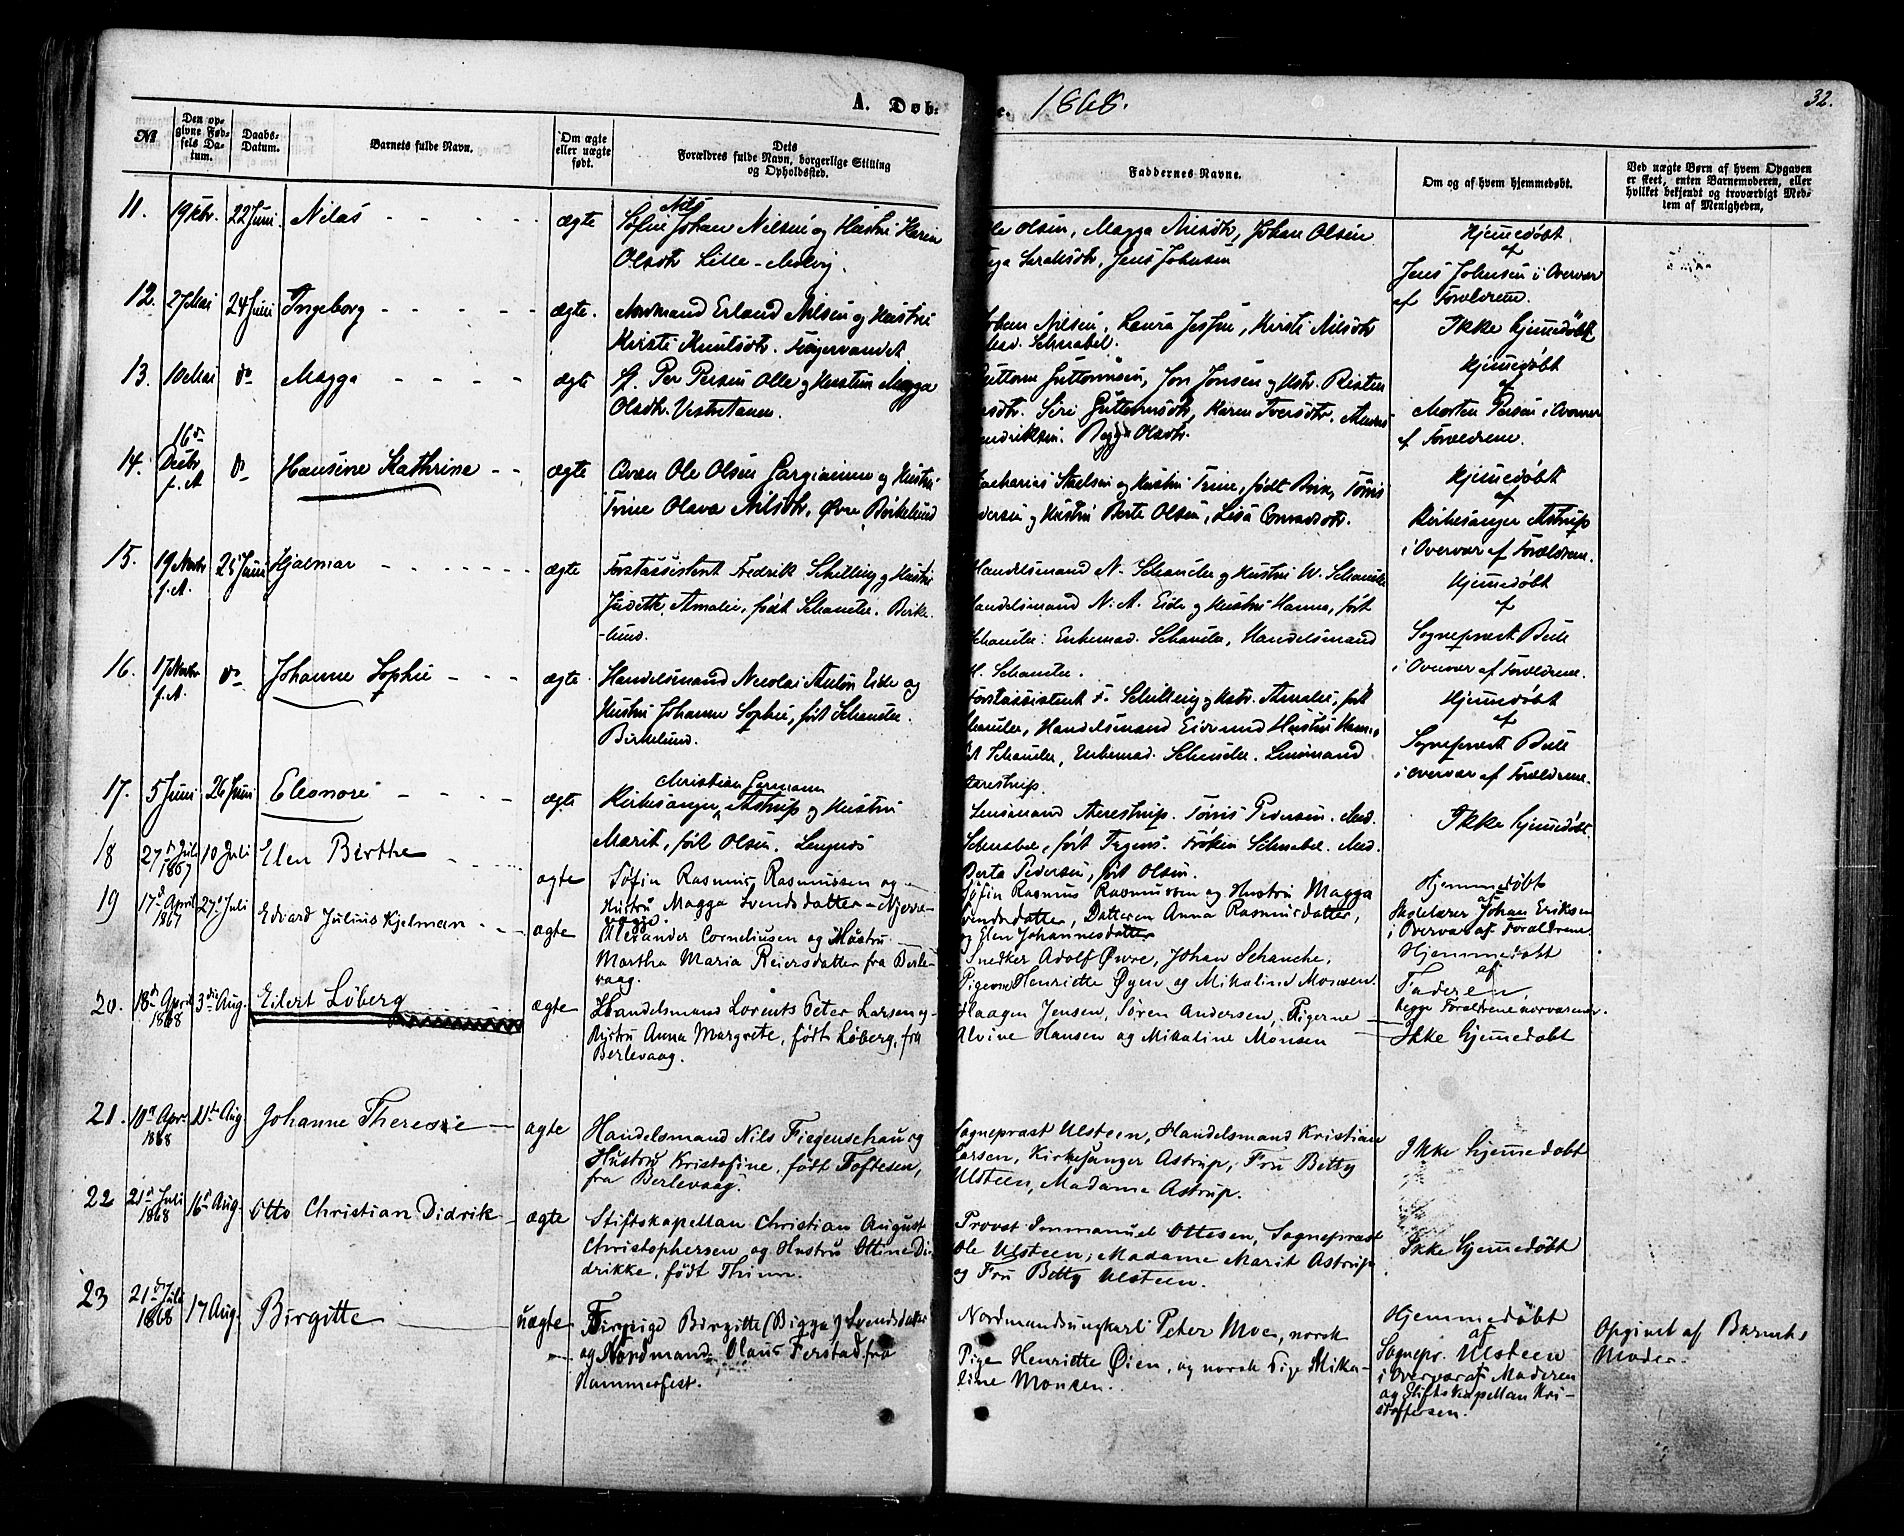 A. Døb.
1868.
32.
№
Den opgivne Fødsels Datum.
Daabs-Datum.
Barnets fulde Navn.
Om ægte eller uægte født.
Dets Forældres fulde Navn, borgerlige Stilling og Opholdssted.
Faddernes Navne.
Om og af hvem hjemmedøbt.
Ved uægte Børn af hvem Opgaven er skeet, enten Barnemoderen, eller hvilket bekjendt og troværdigt Medlem af Menigheden,
11. 22 Juni Nilas ægte
Nils
Søfin Johan Nilsen og Hustru Karen
Olsdtr Lille-Molvig.
Olsen, Magga Nilsdtr, Johan Olsen
Saraksdtr, Jens Johnsen
Hjemmedøbt
af
Jens Johnsen i Overvær
af Forældrene.
12. 27 Mai 24 Juni Ingeborg ægte.
Nordmand Erland Nilsen og Hustru
Kirsti Knutsdtr.
Johan Nilsen, Laura Jessen, Kirsti Nilsdtr
Mad. Schnabel.
Ikke hjemmedøbt
13. 10 Mai do Magga ægte
Sf. Per Persen Olle og Hustru Magga
Olsdtr. Vestretanen.
Guttorm Guttormsen, Jon Jonsen og Hstr. Risten
Siri Guttormsdtr, Karen Iversdtr.
Hendriksen. Olsdtr.
Hjemmedøbt
af
Morten Persen i Overvær
af Forældrene.
14. 16de Decbr f. A. do Hansine Kathrine ægte
Qvæn Ole Olsen og Hustru
Trine Olava Nilsdtr, Øvre Birkelund
Zacharias og Hustru Trine, født Brix, Tørris
Pedersen og Hustru Berte Olsen, Lisa Conradsdtr.
Hjemmedøbt
af
Kirkesanger Astrup
i Overvær af Forældrene.
15. 19 Novbr f. A. 25 Juni Hjalmar ægte
Forstassistent Fredrik Schilling og Hustru
Judith Amalie, født Schanche. Birke
-lund.
Handelsmand N. Schanche og Hustru W. Schanche
Handelsmand N. A. Eide og Hustru Hanna, født
Schanche: Enkemad. Schanche, Handelsmand
H. Schanche.
Hjemmedøbt
af
Sogneprest Bull
i Overvær af Forældrene.
16. 17 Novbr f. A. do Johanne Sophie ægte
Handelsmand Nicolai Anton Eide og
Hustru Johanne Sophie, født Schanche.
Birkelund.
Forstassistent F. Schilling og Hstr. Amalie, født
Schanche, Handelsmand Hustru
Schanche, Enkemad. Schanche. Lensmand
Aarestrup.
Hjemmedøbt
af
Sogneprest Bull
i Overvær af Forældrene.
17. 5 Juni 26 Juni Eleonore ægte
Christian Hermann
Kirkesanger Astrup og Hustru
Marit, født Olsen. Langnæs
Lensmand Aarestrup. Tørris Pedersen. Mad.
Schnabel, født Frøken Schnabel. Mad.
Berta Pedersen, født Olsen.
Ikke hjemmedøbt
18 27de Juli 1867 10 Juli Elen Birthe ægte
Søfin Rasmus Rasmussen og
Hustru Magga Svendsdatter
Søfin Rasmus Rasmussen og Hustru Magga
Svendsdatter, Datteren Anna Rasmusdatter,
og Elen Johannesdatter
Hjemmedøbt
af
Skolelærer Johan Eriksen
i Overvær af Forældrene.
19 17de April 1867 27de Juli Edvard Julius Kjelman ægte
Alexander Corneliusen og Hustru
Martha Maria Reiersdatter fra Berle-
vaag.
Snedker Adolf Øwre, Johan Schanche,
Pigerne Henriette Øyen og Mikaline Monsen.
Hjemmedøbt
af
Faderen
begge Forældrene nærværende.
20. 18de April 1868 3die Aug. Eilert Løberg ægte
Handelsmand Lorents Peter Larsen og
Hustru Anna Margrete, født Løberg, fra
Berlevaag.
Haagen Jensen, Søren Andersen, Pigerne
Alvine Hansen og Mikaline Monsen
Ikke hjemmedøbt
21. 10de Apr. 1868 11te Aug Johanne Theresie ægte
Handelsmand Nils Figenschau og
Hustru Kristofine, født Toftesen,
fra Berlevaag.
Sogneprest Ulsteen, Handelsmand Kristian
Larsen, Kirkesanger Astrup, Fru Betty
Ulsteen, Madame Astrup.
Ikke hjemmedøbt
22 21de Juli 1868 16de Aug. Otto Christian Didrik ægte
Stiftskapellan Christian August
Christophersen og Hustru Ottine Di-
drikke, født Thinn.
Provst Immanuel Ottesen, Sogneprest
Ole Ulsteen, Madame Marit Astrup
og Fru Betty Ulsteen.
Ikke hjemmedøbt
23 21de Juli 1868 17 Aug. Birgitte uægte
Finpige Birgitte (Bigga) Svendsdatter
og Nordmand Olaus Ferstad fra
Hammerfest.
Nordmandsungkarl Peter Moe, norsk
Pige Henriette Øien, og norsk Pige Mika-
line Monsen.
Hjemmedøbt
af
Sognepr. Ulsteen
i Overvær af Moderen
og Stiftskapellan Kri-
stoffersen.
Opgivet af Barnets
Moder.